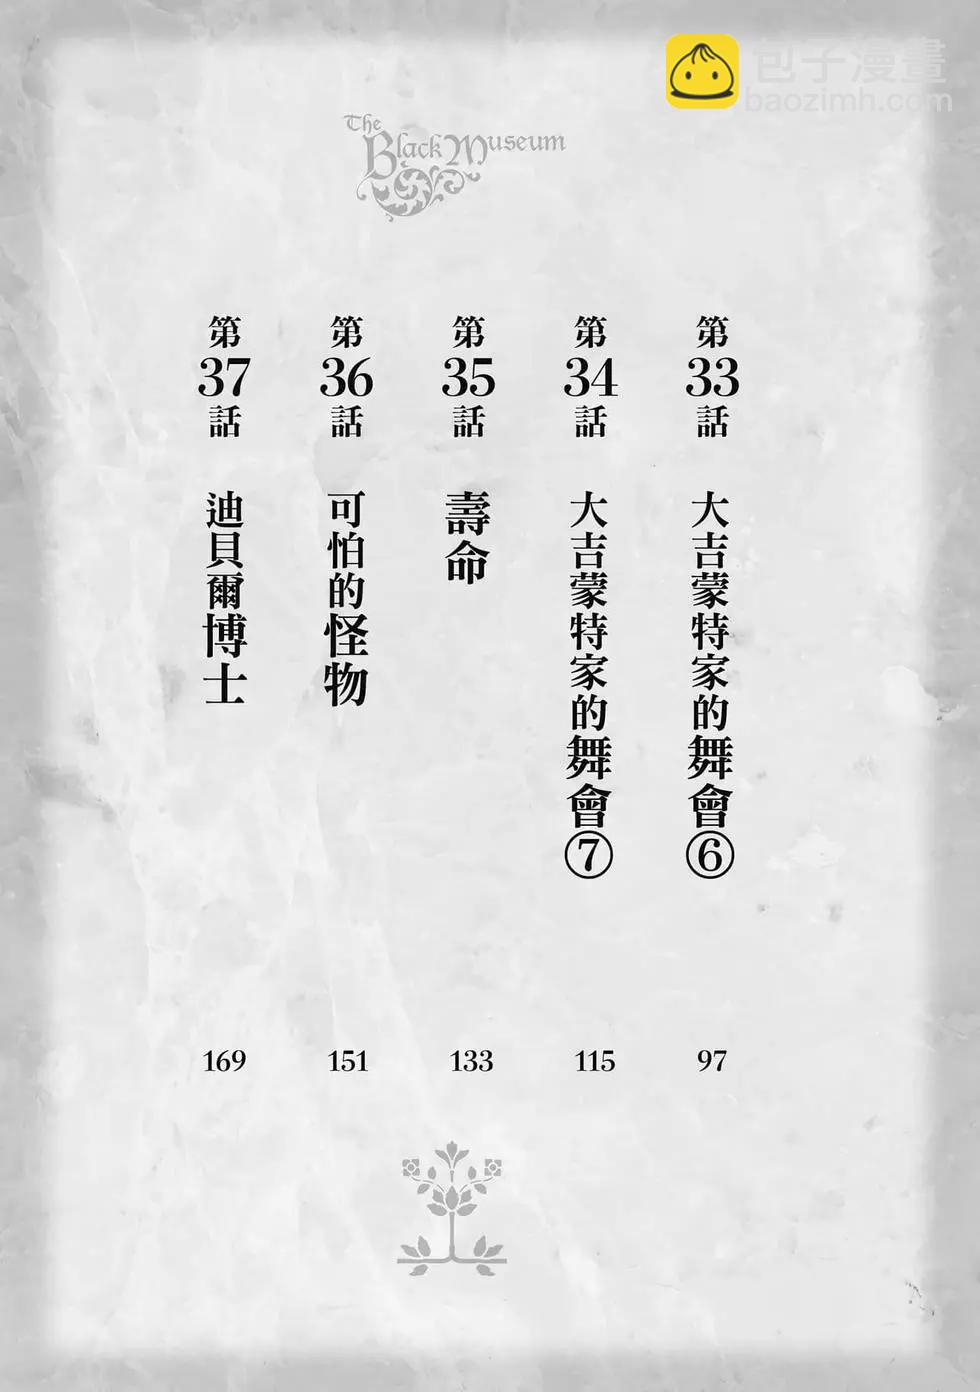 包子漫畫
baozimh.com
The
Black Museum
第33話 大吉蒙特家的舞會⑥ 97
第34話 大吉蒙特家的舞會⑦ 115
第35話 壽命 133
第36話 可怕的怪物 151
第37話 迪貝爾博士 169